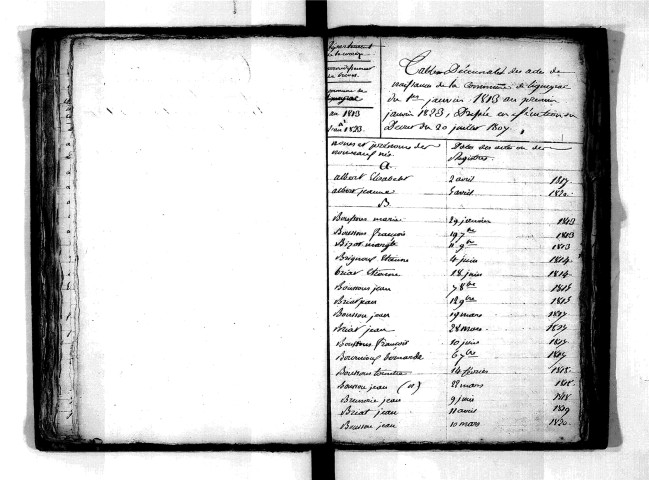 Département
de la corrèze
arrondissement
de brives
commune de
Ligneyrac
an 1813
à
l'an 1823
Tables Décennales des actes de
naissance de la Commune de Ligneyrac
du 1er janvier 1813 au premier
janvier 1823, Dressée en exécution du
Décret du 20 juillet 1807,
noms et prénoms des nouveaux nés.
Dates des actes ou des Registres
A
albert Elisabeht 2 avril 1817
albert jeanne 5 avril 1820
B
Boussous marie 29 janvier 1813
Boussous françois 19 7bre 1813
margte 9re 1813
Etienne 4 juin 1814
briat Etienne 18 juin 1814
Boussous jean 7 8bre 1815
Briat jean 12 9bre 1815
Boussou jean 19 mars 1817
Briat jean 28 mars 1817
Boussous françois 10 juin 1817
6 7bre 1817
Boussous 14 février 1818
Boussou jean 22 mars 1818
jean 9 juin 1818
Briat jean 11 avril 1819
Boussou jean 10 mars 1820